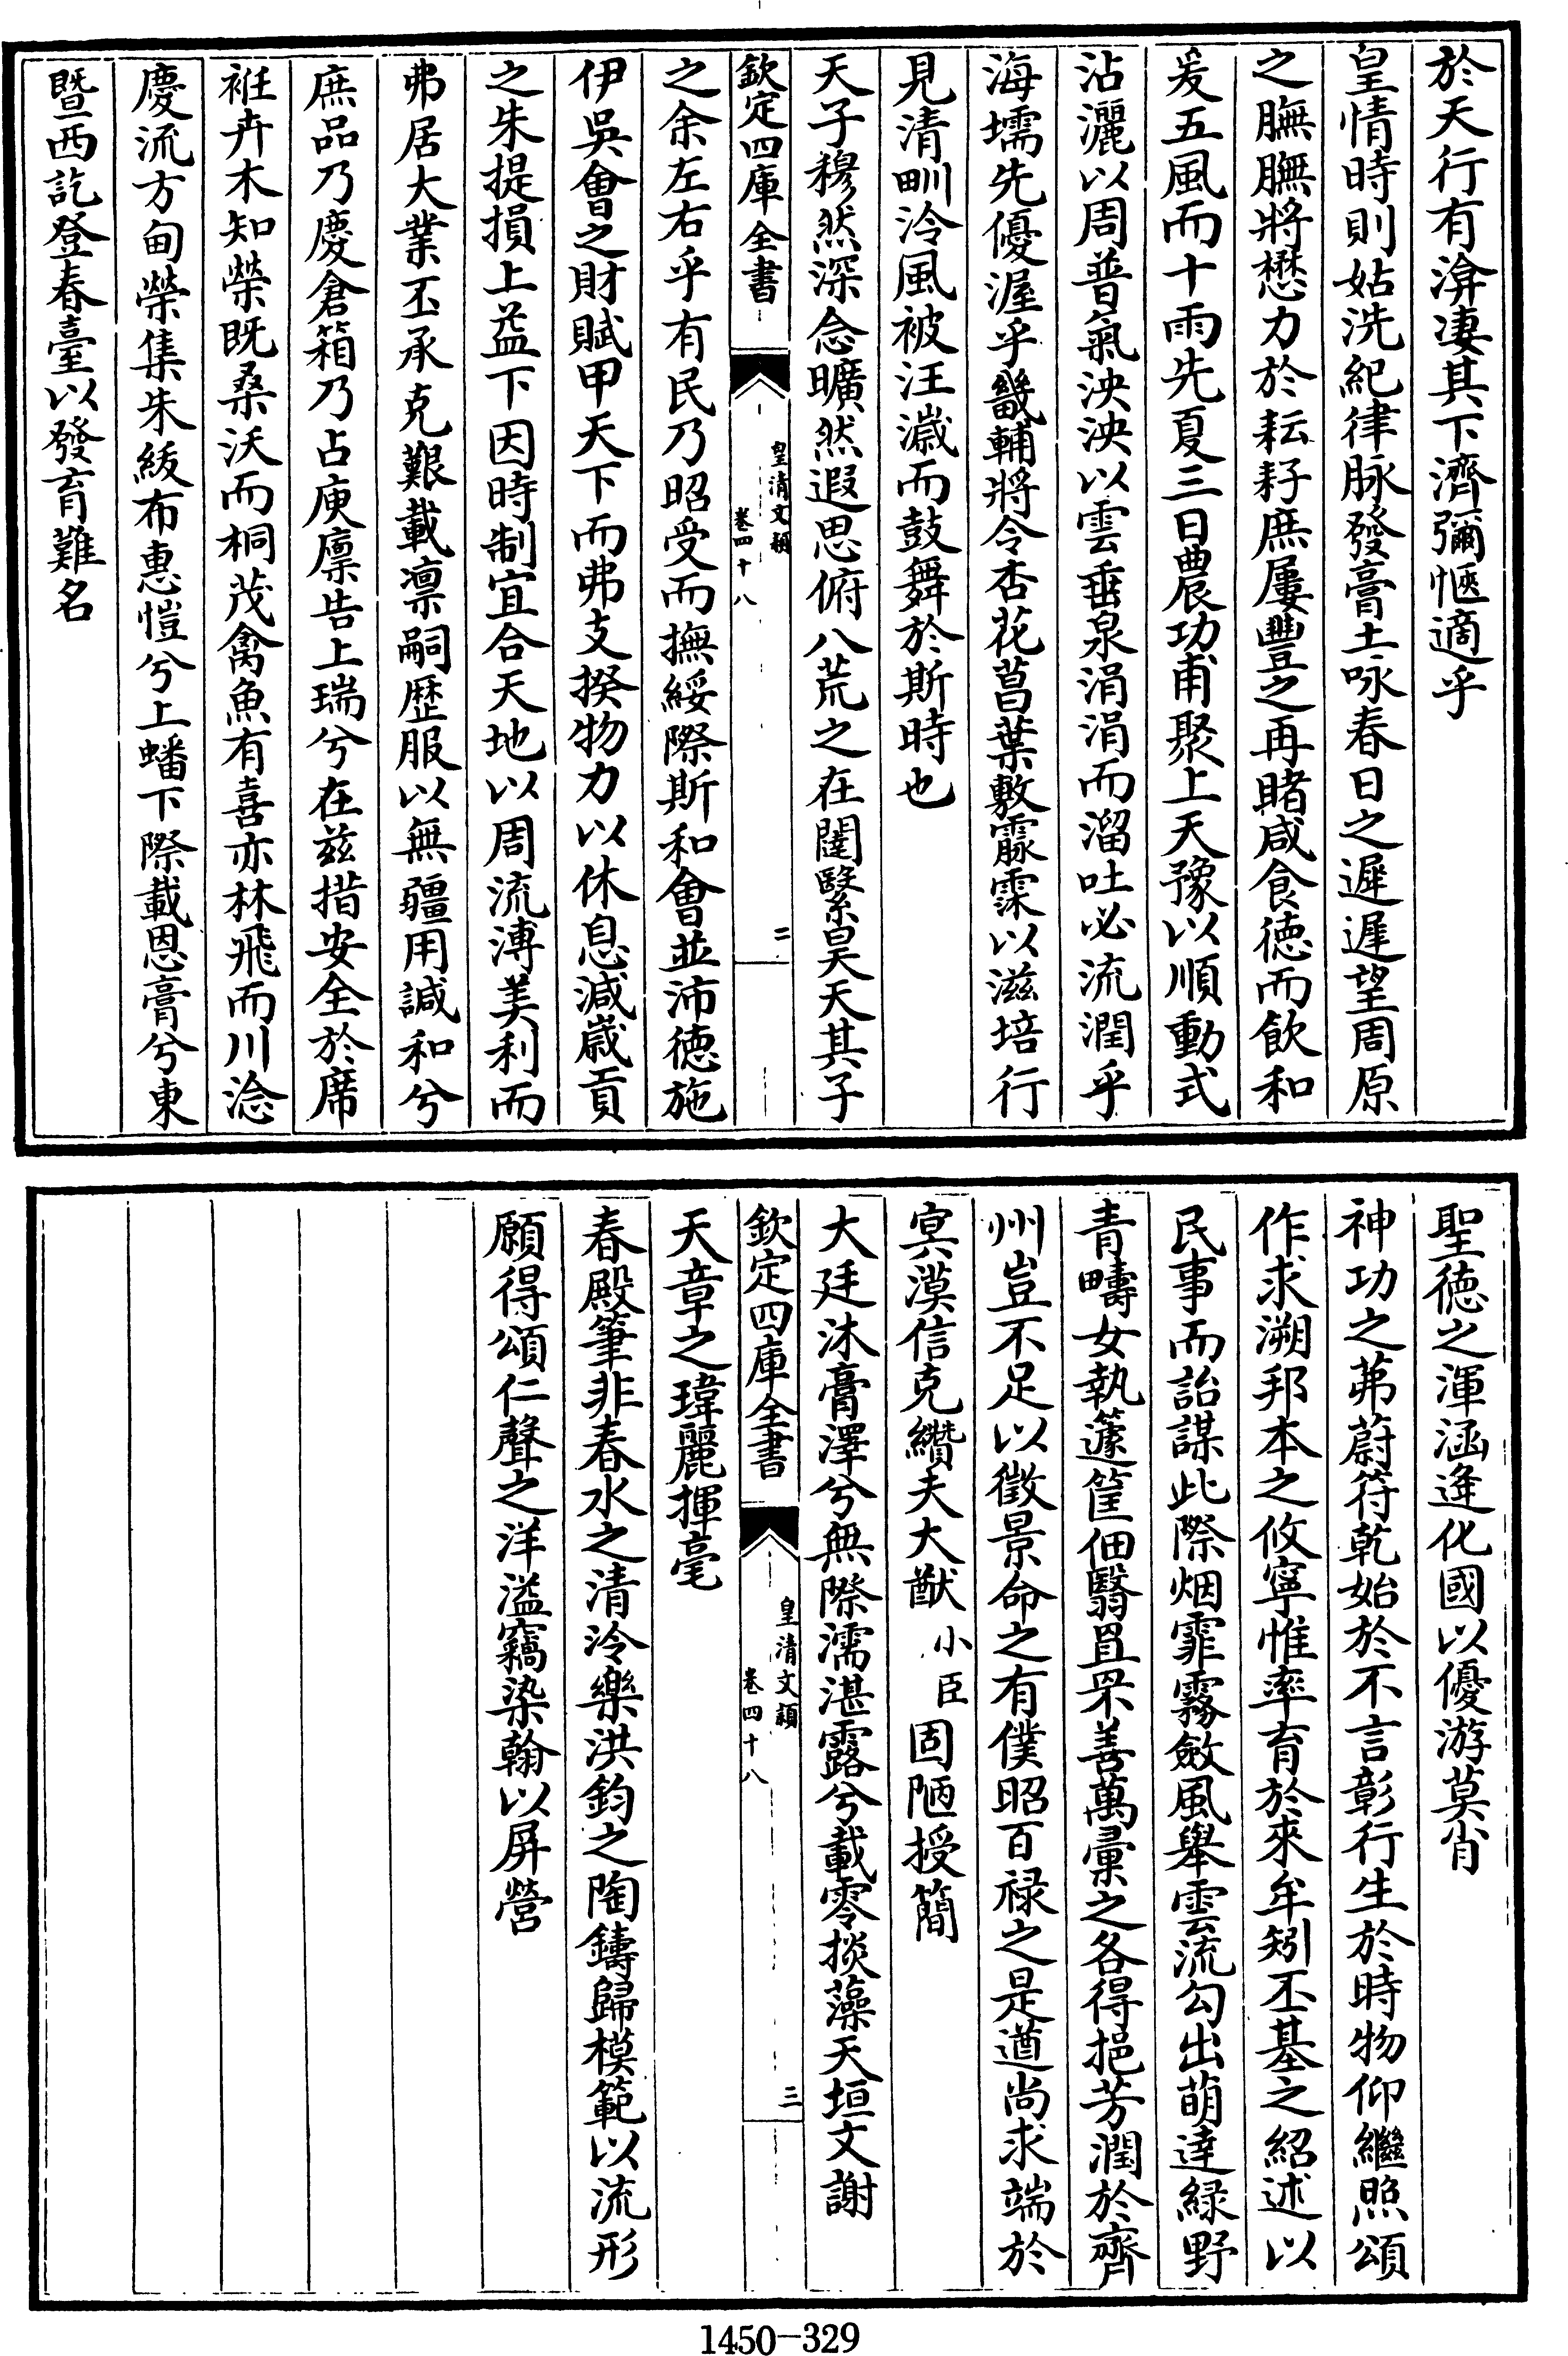 於天行有渰淒其下濟彌愜適乎
皇情時則姑洗紀律脉發膏土咏春日之遲遲望周原
之膴膴將懋力於耘耔庶屢豐之再睹咸食徳而飲和
爰五風而十雨先夏三日農功甫聚上天豫以順動式
沾灑以周普氣泱泱以雲垂泉涓涓而溜吐必流潤乎
海壖先優渥乎畿輔將令杏花菖葉敷霢霂以滋培行
見清甽泠風被汪濊而鼓舞於斯時也
天子穆然深念曠然遐思俯八荒之在闥繄昊天其子
欽定四庫全書
皇清文穎
卷四十八
二
之余左右乎有民乃昭受而撫綏際斯和會並沛徳施
伊吳會之財賦甲天下而弗支揆物力以休息減嵗貢
之朱提損上益下因時制宜合天地以周流溥美利而
弗居大業丕承克艱載凛嗣歴服以無疆用諴和兮
庶品乃慶倉箱乃占庾廪告上瑞兮在兹措安全於席
袵卉木知榮既桑沃而桐茂禽魚有喜亦林飛而川淰
慶流方甸榮集朱紱布惠愷兮上蟠下際載恩膏兮東
暨西訖登春臺以發育難名
聖徳之渾涵逢化國以優游莫肖
神功之茀蔚符乾始於不言彰行生於時物仰繼照頌
作求溯邦本之攸寧惟率育於來牟矧丕基之紹述以
民事而詒謀此際烟霏霧斂風舉雲流勾出萌達緑野
青疇女執籧筐佃翳罝罘善萬彚之各得挹芳潤於齊
州豈不足以徵景命之有僕昭百禄之是遒尚求端於
㝠漠信克纘夫大猷 小臣 固陋授簡
大廷沐膏澤兮無際濡湛露兮載零掞藻天垣文謝
欽定四庫全書
皇清文穎
卷四十八
三
天章之瑋麗揮毫
春殿筆非春水之清泠樂洪鈞之陶鑄歸模範以流形
願得頌仁聲之洋溢竊染翰以屏營
1450-329